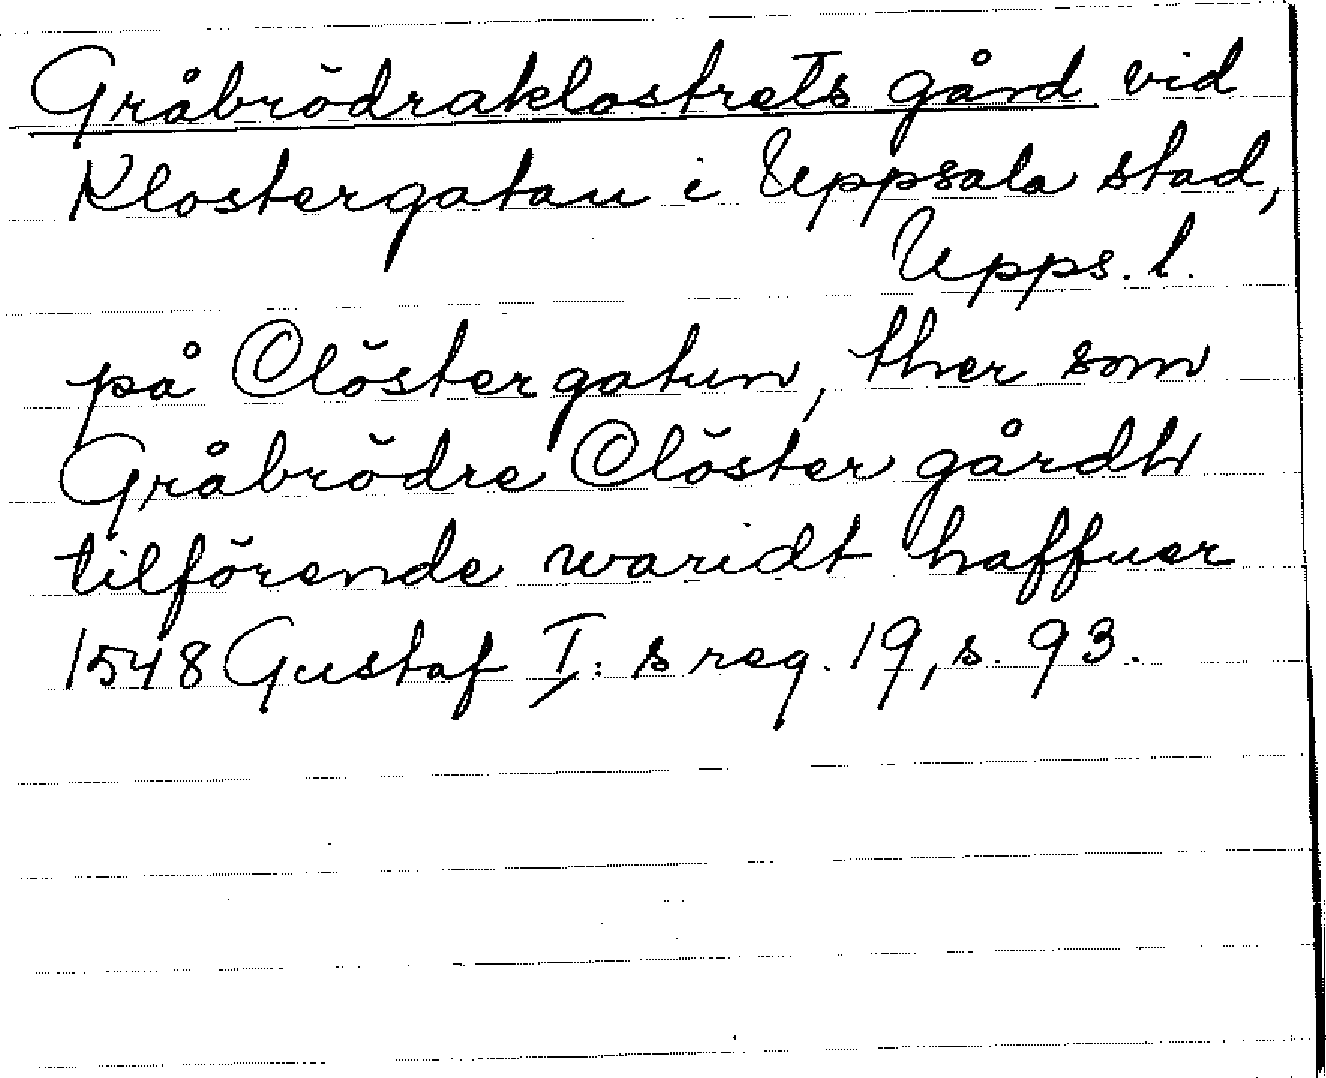 Gråbrödraklostrets gård vid
Klostergatan i Uppsala stad,
Upps. l.
på Clöstergatun, ther som
Gråbrödre Clöster gårdh
tilförende waridt haffuer
1548 Gustaf I: s reg. 19, s. 93.